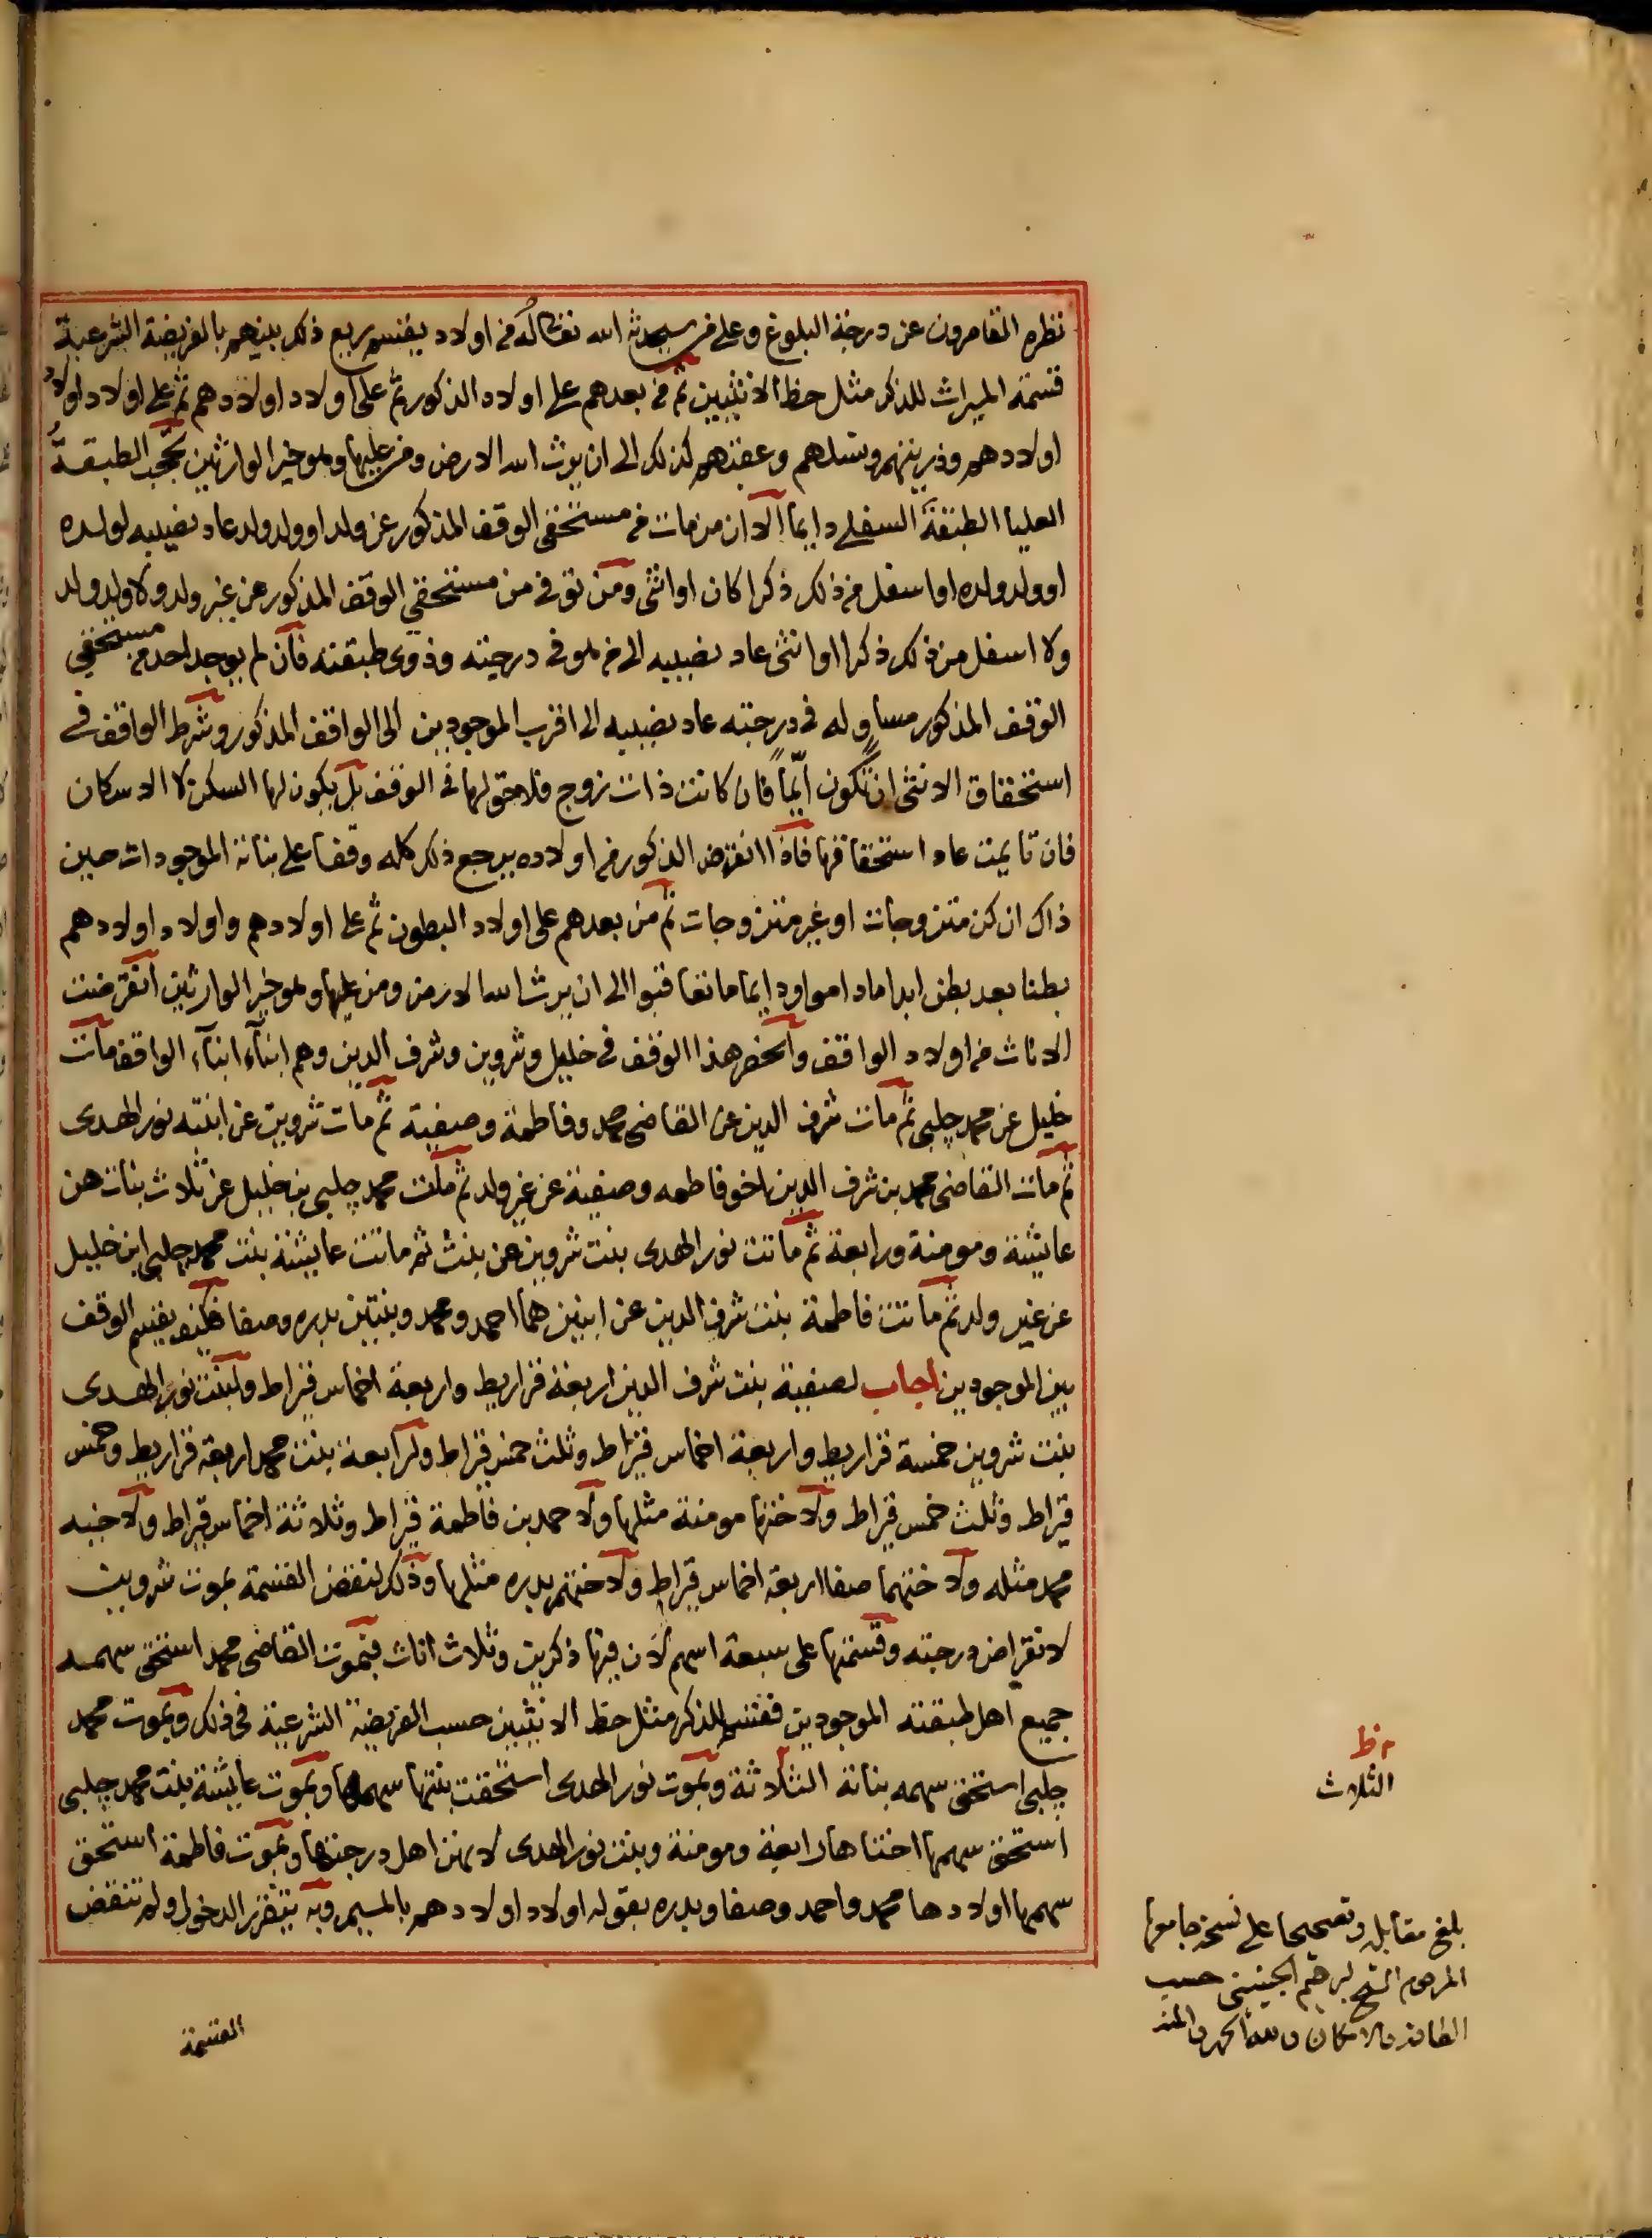 نظره القاصرون عن درجة البلوغ وعلى من سيحدثه الله تعالى له من اولاد يقسم ريع ذلك بينهم بالفريضة الشرعية
قسمة الميراث للذكر مثل حظ الانثيين ثم من بعدهم على اولاد الذكور ثم على اولاد اولادهم ثم على اولاد اولاد
اولادهم وذريتهم ونسلهم وعقبهم كذلك الى ان يرث الله الارض ومن عليها وهو خير الوارثين تحجب الطبقة
العليا الطبقة السفلى دايما الا ان من مات من مستحقي الوقف المذكور عن ولد او ولد ولد عاد نصيبه لولده
او ولد ولده او اسفل من ذلك ذكرا كان او انثى ومن توفي من مستحقي الوقف المذكور عن غير ولد ولا ولد ولد
ولا اسفل من ذلك ذكرا او انثى عاد نصيبه الى من هو في درجته وذوى طبقته فان لم يوجد احد من مستحقي
الوقف المذكور مساو له في درجته عاد نصيبه الى اقرب الموجودين الى الواقف المذكور وشرط الواقف في
استحقاق الانثى ان تكون ايما فان كانت ذات زوج فلا حق لها في الوقف بل يكون لها السكن لا الاسكان
فان تايمت عاد استحقاقها فاذا انقرض الذكور من اولاده يرجع ذلك كله وقفا على بناته الموجودات حين
ذاك ان كن متزوجات او غير متزوجات ثم من بعدهم على اولاد البطون ثم على اولادهم واولاد اولادهم
بطنا بعد بطن ابدا ما داموا ودايما ما تعاقبوا الى ان يرث الله الارض ومن عليها وهو خير الوارثين انقرضت
الاناث من اولاد الواقف وانحصر هذا الوقف في خليل وثروين وشرف الدين وهم ابناء ابناء الواقف مات
خليل عن محمد چلبي ثم مات شرف الدين عن القاضي محمد وفاطمة وصفية ثم مات ثروين عن ابنته نور الهدى
ثم مات القاضي محمد بن شرف الدين اخو فاطمه وصفية عن غير ولد ثم مات محمد چلبي بن خليل عن ثلاث بنات هن
عايشة ومومنة ورابعة ثم ماتت نور الهدى بنت ثروين عن بنت ثم ماتت عايشة بنت محمد چلبي ابن خليل
عن غير ولد ثم ماتت فاطمة بنت شرف الدين عن ابنين هما احمد ومحمد وبنتين بدره وصفا فكيف يقسم الوقف
بين الموجودين اجاب لصفية بنت شرف الدين اربعة قراريط واربعة اخماس قيراط ولبنت نور الهدى
بنت ثروين خمسة قراريط واربعة اخماس قيراط وثلث خمس قيراط ولرابعة بنت محمد اربعة قراريط وخمس
قيراط وثلث خمس قيراط ولاختها مومنة مثلها ولاحمد بن فاطمة قيراط وثلاثة اخماس قيراط ولاخيه
محمد مثله ولاختهما صفا اربعة اخماس قيراط ولاختهم بدره مثلها وذلك لنقض القسمة بموت ثروين
لانقراض درجته وقسمتها على سبعة اسهم لان فيها ذكرين وثلاث اناث فبموت القاضي محمد استحق سهمه
جميع اهل طبقته الموجودين فقسم للذكر مثل حظ الانثيين حسب الفريضة الشرعية في ذلك وبموت محمد
چلبي استحق سهمه بناته الثلاثة وبموت نور الهدى استحقت بنتها سهمها وبموت عايشة بنت محمد چلبي
استحق سهمها اختاها رابعة ومومنة وبنت نور الهدى لانهن اهل درجتها وبموت فاطمة استحق
سهمها اولادها محمد واحمد وصفا وبدره بقوله اولاد اولادهم بالميم وبه يتقرر الدخول ولم تنقض
القسمة
الثلاث
بلغ مقابلة وتصحيحا على نسخة جامعها
المرحوم الشيخ ابرهيم الجينيني حسب
الطاقة والامكان ولله الحمد والمنه